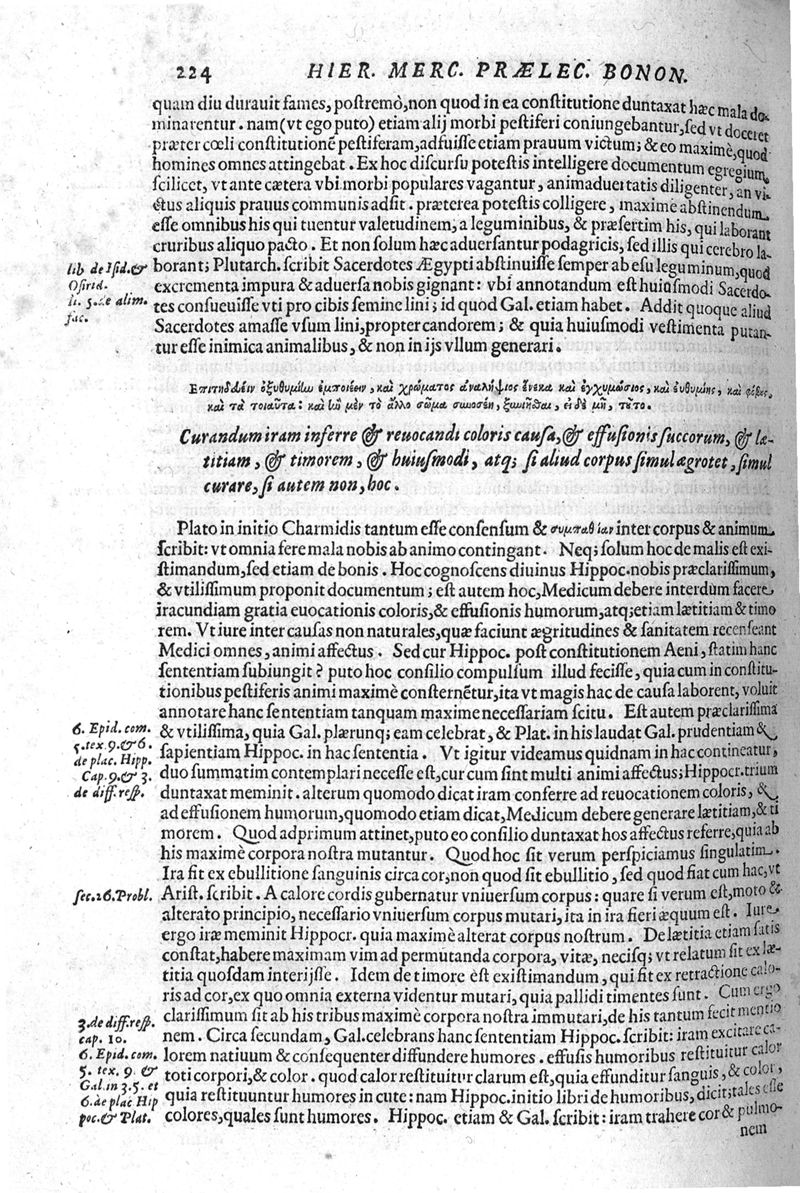 224 HIER. MERC. PRÆLEC. BONON.
quam diu durauit fames, postremò, non quod in ea constitutione duntaxat hæc mala do-
minarentur. nam (vt ego puto) etiam alij morbi pestiferi coniungebantur, sed vt doceret
præter cœli constitutionē pestiferam, adfuisse etiam prauum victum; & eo maximè, quod
homines omnes attingebat. Ex hoc discursu potestis intelligere documentum egregium
scilicet, vt ante cætera vbi morbi populares vagantur, animaduertatis diligenter, an vi-
ctus aliquis prauus communis adsit. præterea potestis colligere, maximè abstinendum
esse omnibus his qui tuentur valetudinem, a leguminibus, & præsertim his, qui laborant
cruribus aliquo pacto. Et non solum hæc aduersantur podagricis, sed illis qui cerebro la-
lib de Isid. &
Osirid.
li. 5. de alim.
fac.
borant; Plutarch. scribit Sacerdotes Ægypti abstinuisse semper ab esu leguminum, quod
excrementa impura & aduersa nobis gignant: vbi annotandum est huiusmodi Sacerdo-
tes consueuisse vti pro cibis semine lini; id quod Gal. etiam habet. Addit quoque aliud
Sacerdotes amasse vsum lini, propter candorem; & quia huiusmodi vestimenta putan-
tur esse inimica animalibus, & non in ijs vllum generari.
Επιτηδεύειν ὀξυθυμίην ἐμποιέειν, καὶ χρώματος ἀναλήψιος ἕνεκα καὶ ἐγχυμώσιος, καὶ εὐθυμίης, καὶ φόβους,
καὶ τὰ τοιαῦτα: καὶ ἢν μὲν τὸ ἄλλο σῶμα συνοσέῃ, ξυνιῆσθαι, εἰ δὲ μὴ, τοῦτο.
Curandum iram inferre & reuocandi coloris causa, & effusionis succorum, & læ-
titiam, & timorem, & huiusmodi, atq; si aliud corpus simul ægrotet, simul
curare, si autem non, hoc.
Plato in initio Charmidis tantum esse consensum & συμπαθίαν inter corpus & animum
scribit: vt omnia fere mala nobis ab animo contingant. Neq; solum hoc de malis est exi-
stimandum, sed etiam de bonis. Hoc cognoscens diuinus Hippoc. nobis præclarissimum,
& vtilissimum proponit documentum; est autem hoc, Medicum debere interdùm facere
iracundiam gratia euocationis coloris, & effusionis humorum, atq; etiam lætitiam & timo
rem. Vt iure inter causas non naturales, quæ faciunt ægritudines & sanitatem recenseant
Medici omnes, animi affectus. Sed cur Hippoc. post constitutionem Aeni, statim hanc
sententiam subiungit? puto hoc consilio compulsum illud fecisse, quia cum in constitu-
tionibus pestiferis animi maximè consternētur, ita vt magis hac de causa laborent, voluit
annotare hanc sententiam tanquam maxime necessariam scitu. Est autem præclarissima
6. Epid. com.
5. tex. 9. & 6.
de plac. Hipp.
Cap. 9. & 3.
de diff. resp.
& vtilissima, quia Gal. plærunq; eam celebrat, & Plat. in his laudat Gal. prudentiam &
sapientiam Hippoc. in hac sententia. Vt igitur videamus quidnam in hac contineatur,
duo summatim contemplari necesse est, cur cum sint multi animi affectus; Hippocr. trium
duntaxat meminit. alterum quomodo dicat iram conferre ad reuocationem coloris, &
ad effusionem humorum, quomodo etiam dicat, Medicum debere generare lætitiam, & ti
morem. Quod ad primum attinet, puto eo consilio duntaxat hos affectus referre, quia ab
his maximè corpora nostra mutantur. Quod hoc sit verum perspiciamus singulatim.
Ira fit ex ebullitione sanguinis circa cor, non quod sit ebullitio, sed quod fiat cum hac, vt
sec. 26. Probl.
Arist. scribit. A calore cordis gubernatur vniuersum corpus: quare si verum est, moto &
alterato principio, necessario vniuersum corpus mutari, ita in ira fieri æquum est. Iure
ergo iræ meminit Hippocr. quia maximè alterat corpus nostrum. De lætitia etiam satis
constat, habere maximam vim ad permutanda corpora, vitæ, necisq; vt relatum sit ex læ-
titia quosdam interijsse. Idem de timore èst existimandum, qui fit ex retractione calo-
ris ad cor, ex quo omnia externa videntur mutari, quia pallidi timentes sunt. Cum ergo
3. de diff. resp.
cap. 10.
6. Epid. com.
5. tex. 9. &
Gal. in 3. 5. et
6. de plac Hip
poc. & Plat.
clarissimum sit ab his tribus maximè corpora nostra immutari, de his tantum fecit mentio
nem. Circa secundam, Gal. celebrans hanc sententiam Hippoc. scribit: iram excitare ca-
lorem natiuum & consequenter diffundere humores. effusis humoribus restituitur calor
toti corpori, & color. quod calor restituitur clarum est, quia effunditur sanguis, & color,
quia restituuntur humores in cute: nam Hippoc. initio libri de humoribus, dicit; tales esse
colores, quales sunt humores. Hippoc. etiam & Gal. scribit: iram trahere cor & pulmo-
nem